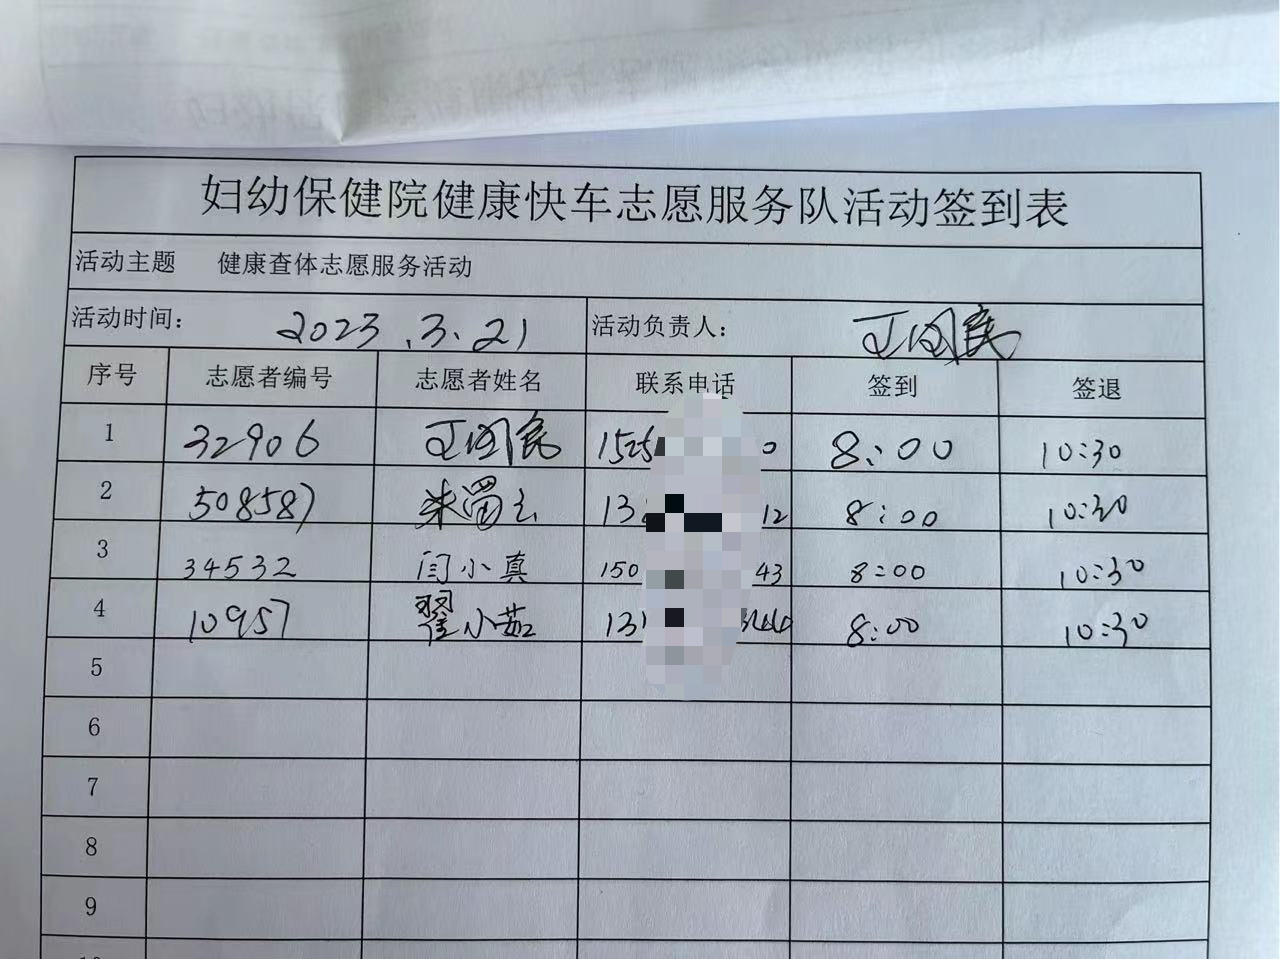 妇幼保健院健康快车志愿服务队活动签到表
活动主题 健康查体志愿服务活动
活动时间： 2023.3.21 活动负责人：
序号 志愿者编号 志愿者姓名 联系电话 签到 签退
1 32906 8:00 10:30
2 508587 13 12 8:00 10:30
3 34532 闫小真 150 43 8:00 10:30
4 10957 翟小茹 131 8:00 10:30
5
6
7
8
9